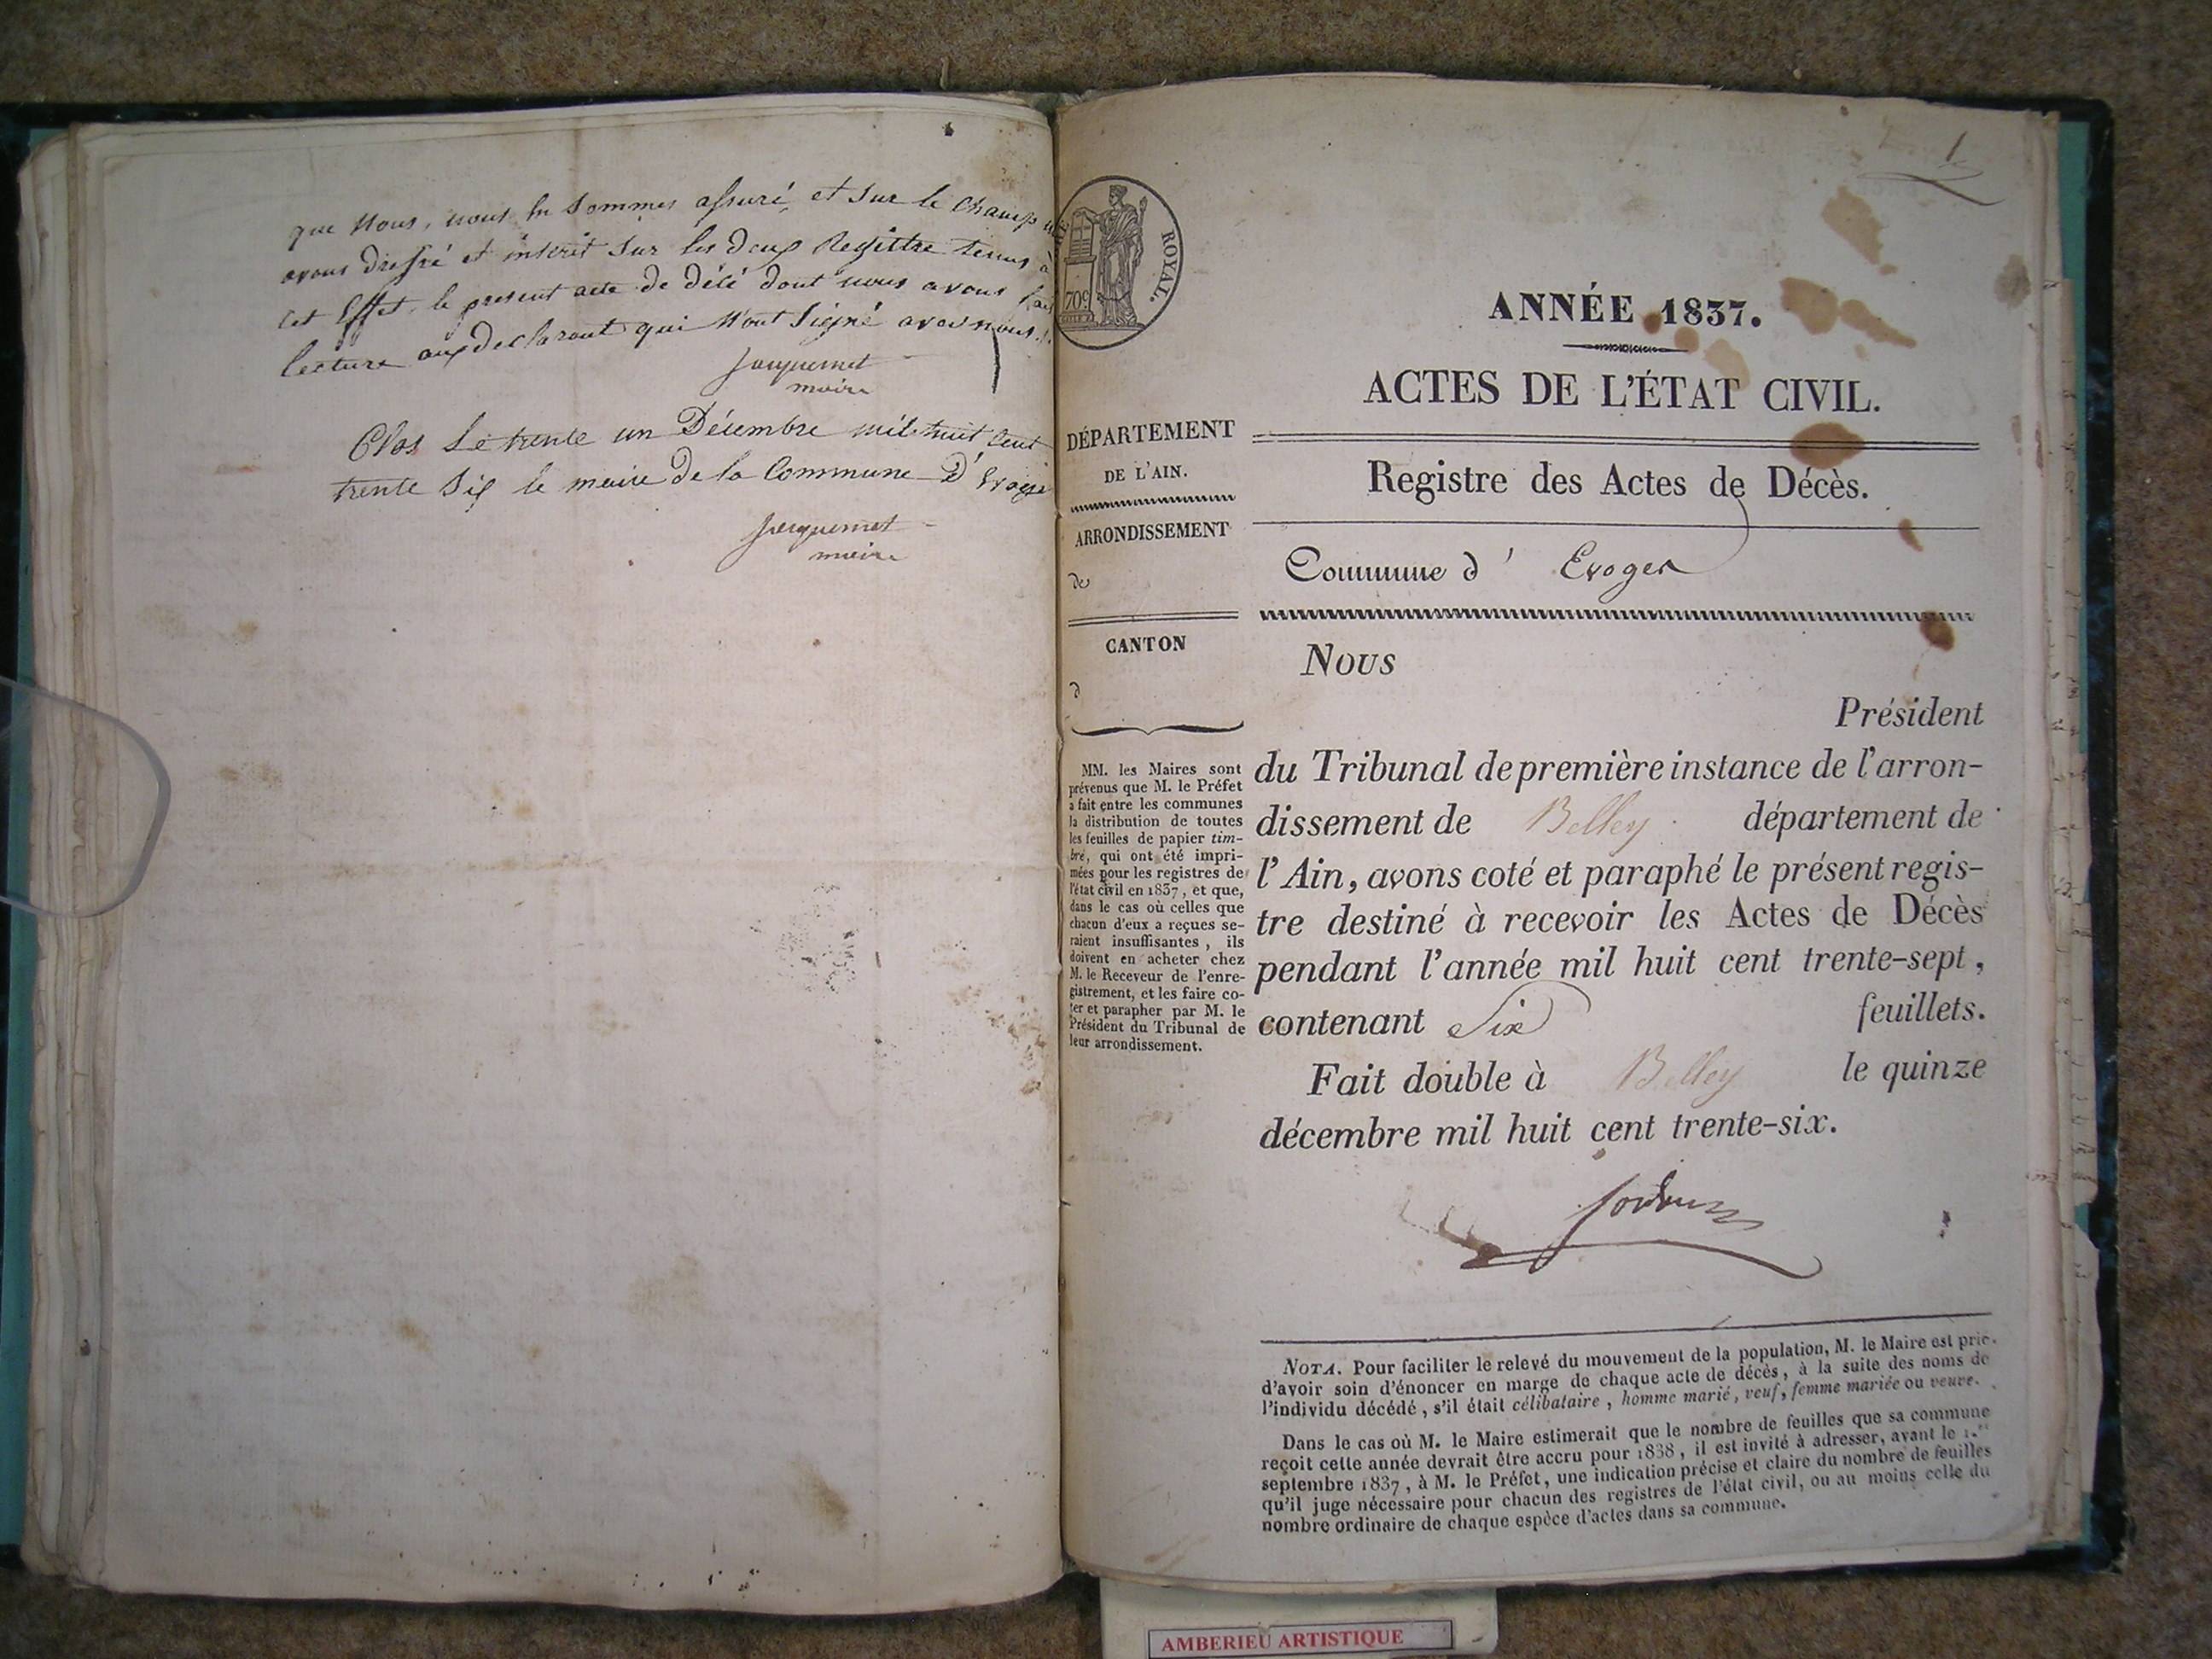 que Nous, nous en sommes assuré, et sur le champ
avons dressé et inscrit sur les deux Registre tenus à
cet Effet, le present acte de décé dont nous avons fait
lecture aux declarant qui N'ont Signé avec nous.
Jacquemet
maire
Clos Le trente un Décembre mil huit Cent
trente Six le maire de la Commune D'Evoge
Jacquemet
maire
1
ROYAL.
70c
ANNÉE 1837.
ACTES DE L'ÉTAT CIVIL.
Registre des Actes de Décès.
Commune d' Evoges
DÉPARTEMENT
DE L'AIN.
ARRONDISSEMENT
de
CANTON
d
MM. les Maires sont
prévenus que M. le Préfet
a fait entre les communes
la distribution de toutes
les feuilles de papier tim-
bré, qui ont été impri-
mées pour les registres de
l'état civil en 1837, et que,
dans le cas où celles que
chacun d'eux a reçues se-
raient insuffisantes, ils
doivent en acheter chez
M. le Receveur de l'enre-
gistrement, et les faire co-
ter et parapher par M. le
Président du Tribunal de
leur arrondissement.
Nous
Président
du Tribunal de première instance de l'arron-
dissement de Belley département de
l'Ain, avons coté et paraphé le présent regis-
tre destiné à recevoir les Actes de Décès
pendant l'année mil huit cent trente-sept,
contenant Six feuillets.
Fait double à Belley le quinze
décembre mil huit cent trente-six.
NOTA. Pour faciliter le relevé du mouvement de la population, M. le Maire est prié
d'avoir soin d'énoncer en marge de chaque acte de décès, à la suite des noms de
l'individu décédé, s'il était célibataire, homme marié, veuf, femme mariée ou veuve.
Dans le cas où M. le Maire estimerait que le nombre de feuilles que sa commune
reçoit cette année devrait être accru pour 1838, il est invité à adresser, avant le 1.er
septembre 1837, à M. le Préfet, une indication précise et claire du nombre de feuilles
qu'il juge nécessaire pour chacun des registres de l'état civil, ou au moins celle du
nombre ordinaire de chaque espèce d'actes dans sa commune.
AMBERIEU ARTISTIQUE